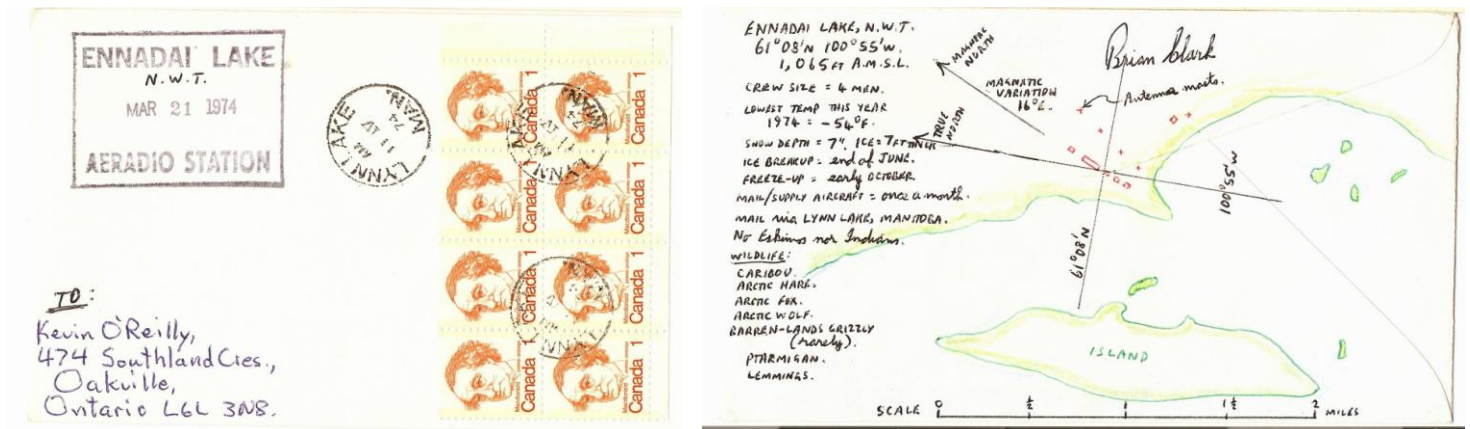 ENNADAI LAKE
N.W.T.
MAR 21 1974
AERADIO STATION
LYNN LAKE
AM
11 IV
74
MAN.
LYNN LAKE
AM
11 IV
74
MAN.
LYNN
Canada 1
Canada 1
Canada 1
Canada 1
Canada 1
Canada 1
Canada 1
Canada 1
TO:
Kevin O'Reilly,
474 Southland Cres.,
Oakville,
Ontario L6L 3N8.
ENNADAI LAKE, N.W.T.
61°08'N 100°55'W.
1,065 FT A.M.S.L.
CREW SIZE = 4 MEN.
LOWEST TEMP THIS YEAR
1974 = -54°F.
SNOW DEPTH = 7", ICE = 7FT THICK
ICE BREAKUP = end of JUNE.
FREEZE-UP = early OCTOBER.
MAIL/SUPPLY AIRCRAFT = once a month.
MAIL via LYNN LAKE, MANITOBA.
No Eskimos nor Indians.
WILDLIFE:
CARIBOU.
ARCTIC HARE.
ARCTIC FOX.
ARCTIC WOLF.
BARREN-LANDS GRIZZLY
(rarely).
PTARMIGAN.
LEMMINGS.
MAGNETIC
NORTH
MAGNATIC
VARIATION
16°E.
TRUE
NORTH
Brian Clark
Antenna masts.
100°55'W
61°08'N
ISLAND
SCALE 0 ½ 1 1½ 2 MILES